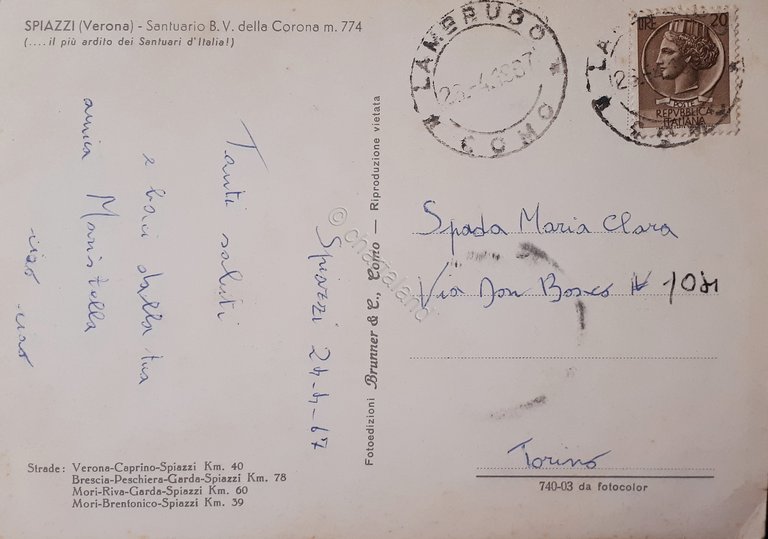 SPIAZZI (Verona) - Santuario B. V. della Corona m. 774
(.... il più ardito dei Santuari d'Italia!)
LAMBRUGO
COMO
LIRE 20
POSTE
REPVBBLICA
ITALIANA
Spiazzi 24-4-67
Tanti saluti
e baci dalla tua
amica Maristella
ciao ciao
© charaland
Fotoedizioni Brunner & C., Como — Riproduzione vietata
Spada Maria Clara
Via Don Bosco
Torino
740-03 da fotocolor
Strade : Verona-Caprino-Spiazzi Km. 40
Brescia-Peschiera-Garda-Spiazzi Km. 78
Mori-Riva-Garda-Spiazzi Km. 60
Mori-Brentonico-Spiazzi Km. 39